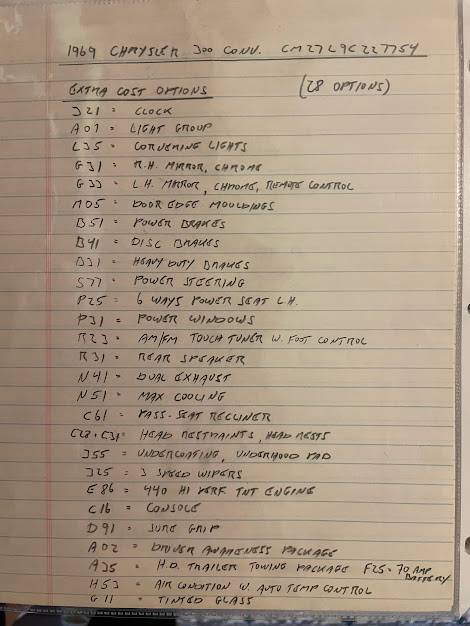 1969 CHRYSLER 300 CONV. CM27L9C227754
EXTRA COST OPTIONS (28 OPTIONS)
J21 = CLOCK
A01 = LIGHT GROUP
L35 = CORNERING LIGHTS
G31 = R.H. MIRROR, CHROME
G33 = L.H. MIRROR, CHROME, REMOTE CONTROL
M05 = DOOR EDGE MOULDINGS
B51 = POWER BRAKES
B41 = DISC BRAKES
B31 = HEAVY DUTY BRAKES
S77 = POWER STEERING
P25 = 6 WAYS POWER SEAT L.H.
P31 = POWER WINDOWS
R23 = AM/FM TOUCH TUNER W. FOOT CONTROL
R31 = REAR SPEAKER
N41 = DUAL EXHAUST
N51 = MAX COOLING
C61 = PASS-SEAT RECLINER
C28+C31= HEAD RESTRAINTS, HEAD RESTS
J55 = UNDERCOATING, UNDERHOOD PAD
J25 = 3 SPEED WIPERS
E86 = 440 HI PERF TNT ENGINE
C16 = CONSOLE
D91 = SURE GRIP
A02 = DRIVER AWARENESS PACKAGE
A35 = H.D. TRAILER TOWING PACKAGE F25=70 AMP BATTERY
H53 = AIR CONDITION W. AUTO TEMP CONTROL
G11 = TINTED GLASS